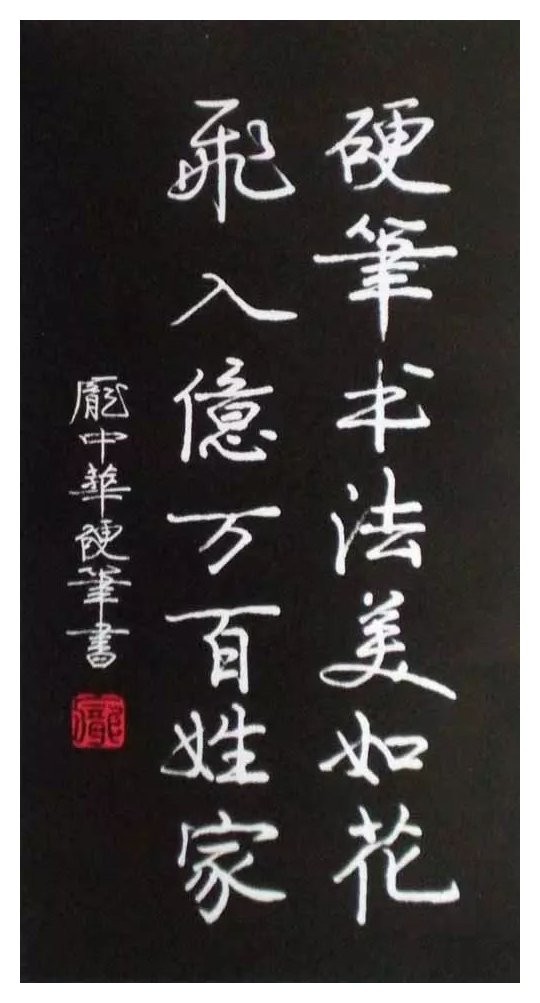 硬筆书法美如花
飛入億万百姓家
龐中華硬筆書
龐